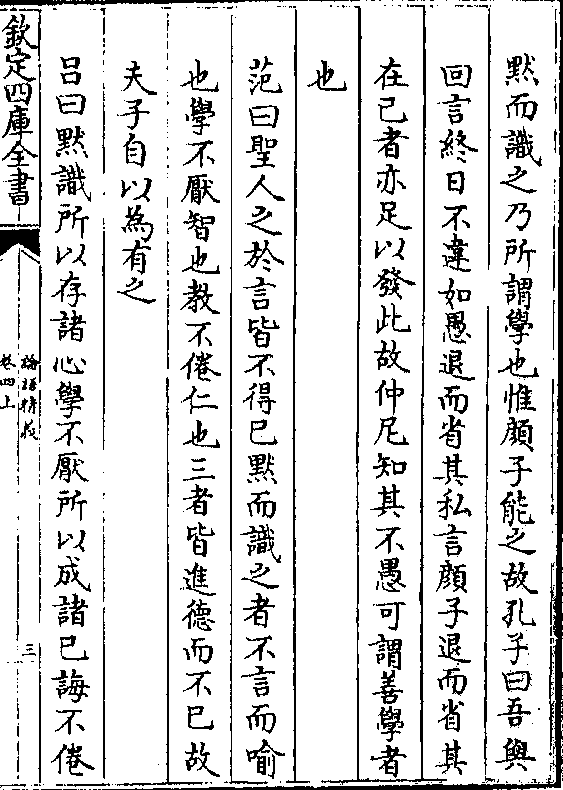 黙而識之乃所謂學也惟顔子能之故孔子曰吾與
回言終日不違如愚退而省其私言顔子退而省其
在已者亦足以發此故仲尼知其不愚可謂善學者
也
范曰聖人之於言皆不得已黙而識之者不言而喻
也學不厭智也教不倦仁也三者皆進德而不已故
夫子自以為有之
吕曰黙識所以存諸心學不厭所以成諸已誨不倦
欽定四庫全書
論語精義
卷四上
三